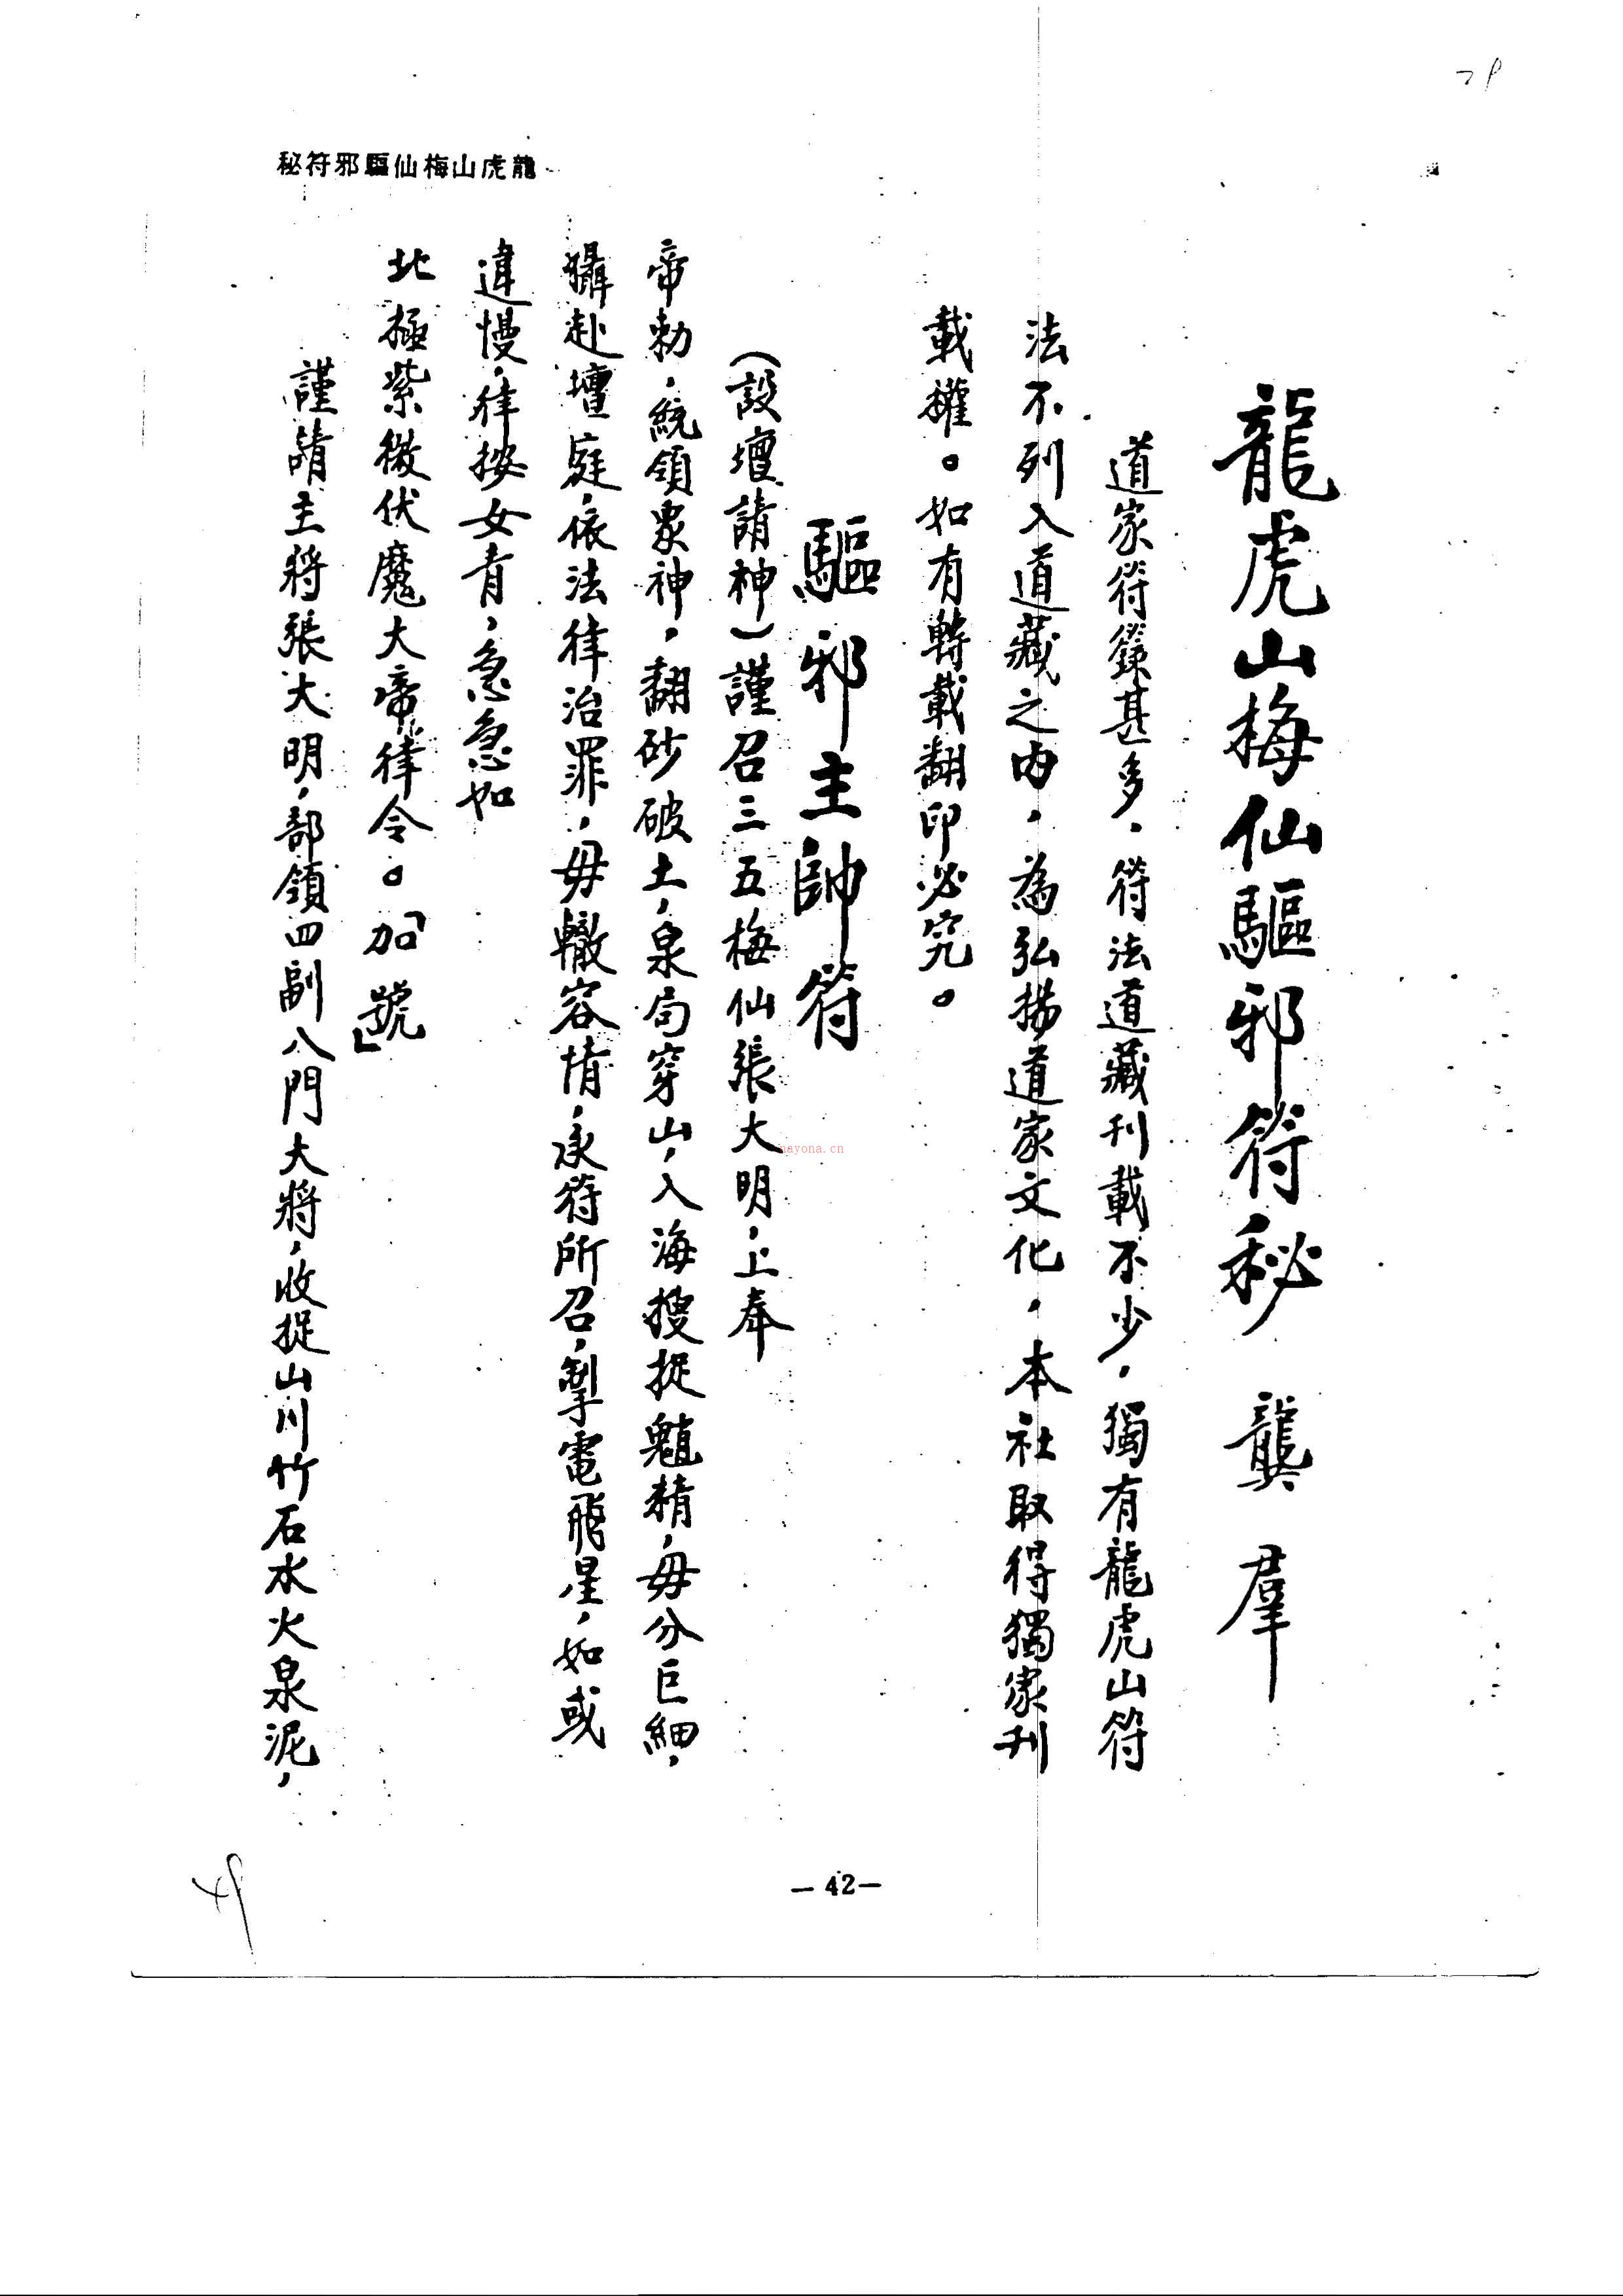 龍虎山梅仙驅邪符秘
龍虎山梅仙驅邪符秘　龔羣
道家符籙甚多，符法道藏刊載不少，獨有龍虎山符
法不列入道藏之內，為弘揚道家文化，本社取得獨家刊
載權。如有轉載翻印必究。
驅邪主帥符
（設壇請神）謹召三五梅仙張大明，上奉
帝勅，統領眾神，翻砂破土，泉局穿山，入海搜捉魖精，毋分巨細，
攝赴壇庭，依法律治罪，毋轍容情，承符所召，掣電飛星，如或
違慢，律按女青，急急如
北極紫微伏魔大帝律令。「加號」
謹請主將張大明，部領四副八門大將，收捉山川竹石水火泉泥，
—42—
nayona.cn